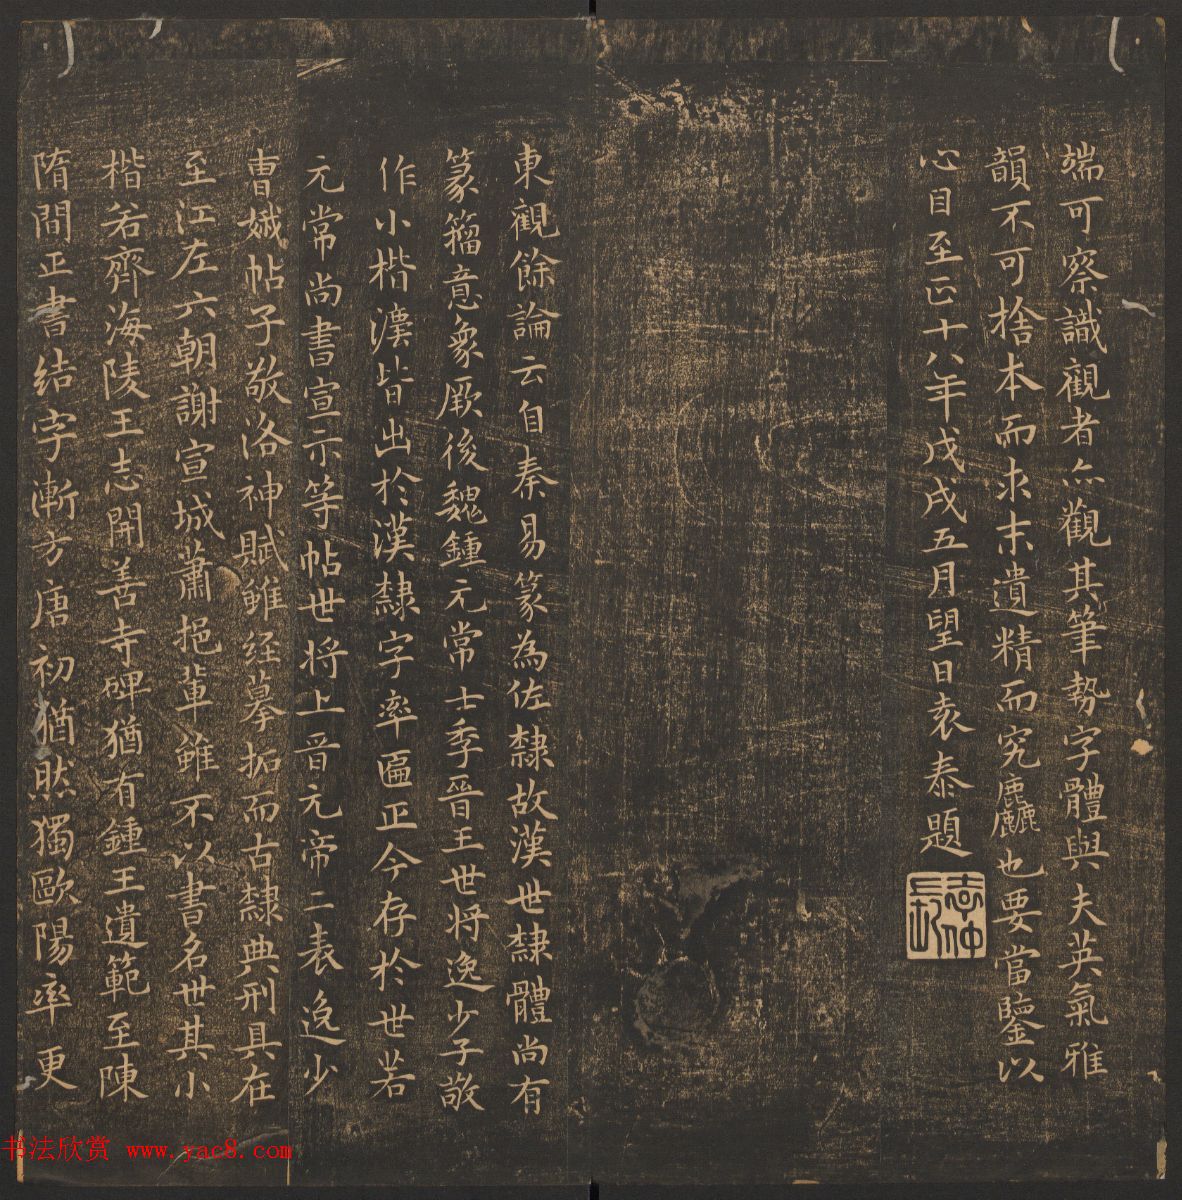 端可察識觀者亦觀其筆勢字體與夫英氣雅
韻不可捨本而求末遺精而究麤也要當鑒以
心目至正十八年戊戌五月望日袁泰題
東觀餘論云自秦易篆為佐隸故漢世隸體尚有
篆籀意象厥後魏鍾元常士季晉王世將逸少子敬
作小楷灋皆出於漢隸字率匾正今存於世若
元常尚書宣示等帖世將上晉元帝二表逸少
曹娥帖子敬洛神賦雖經摹拓而古隸典刑具在
至江左六朝謝宣城蕭挹輩雖不以書名世其小
楷若齊海陵王志開善寺碑猶有鍾王遺範至陳
隋間正書結字漸方唐初猶然獨歐陽率更
书法欣赏 www.yac8.com